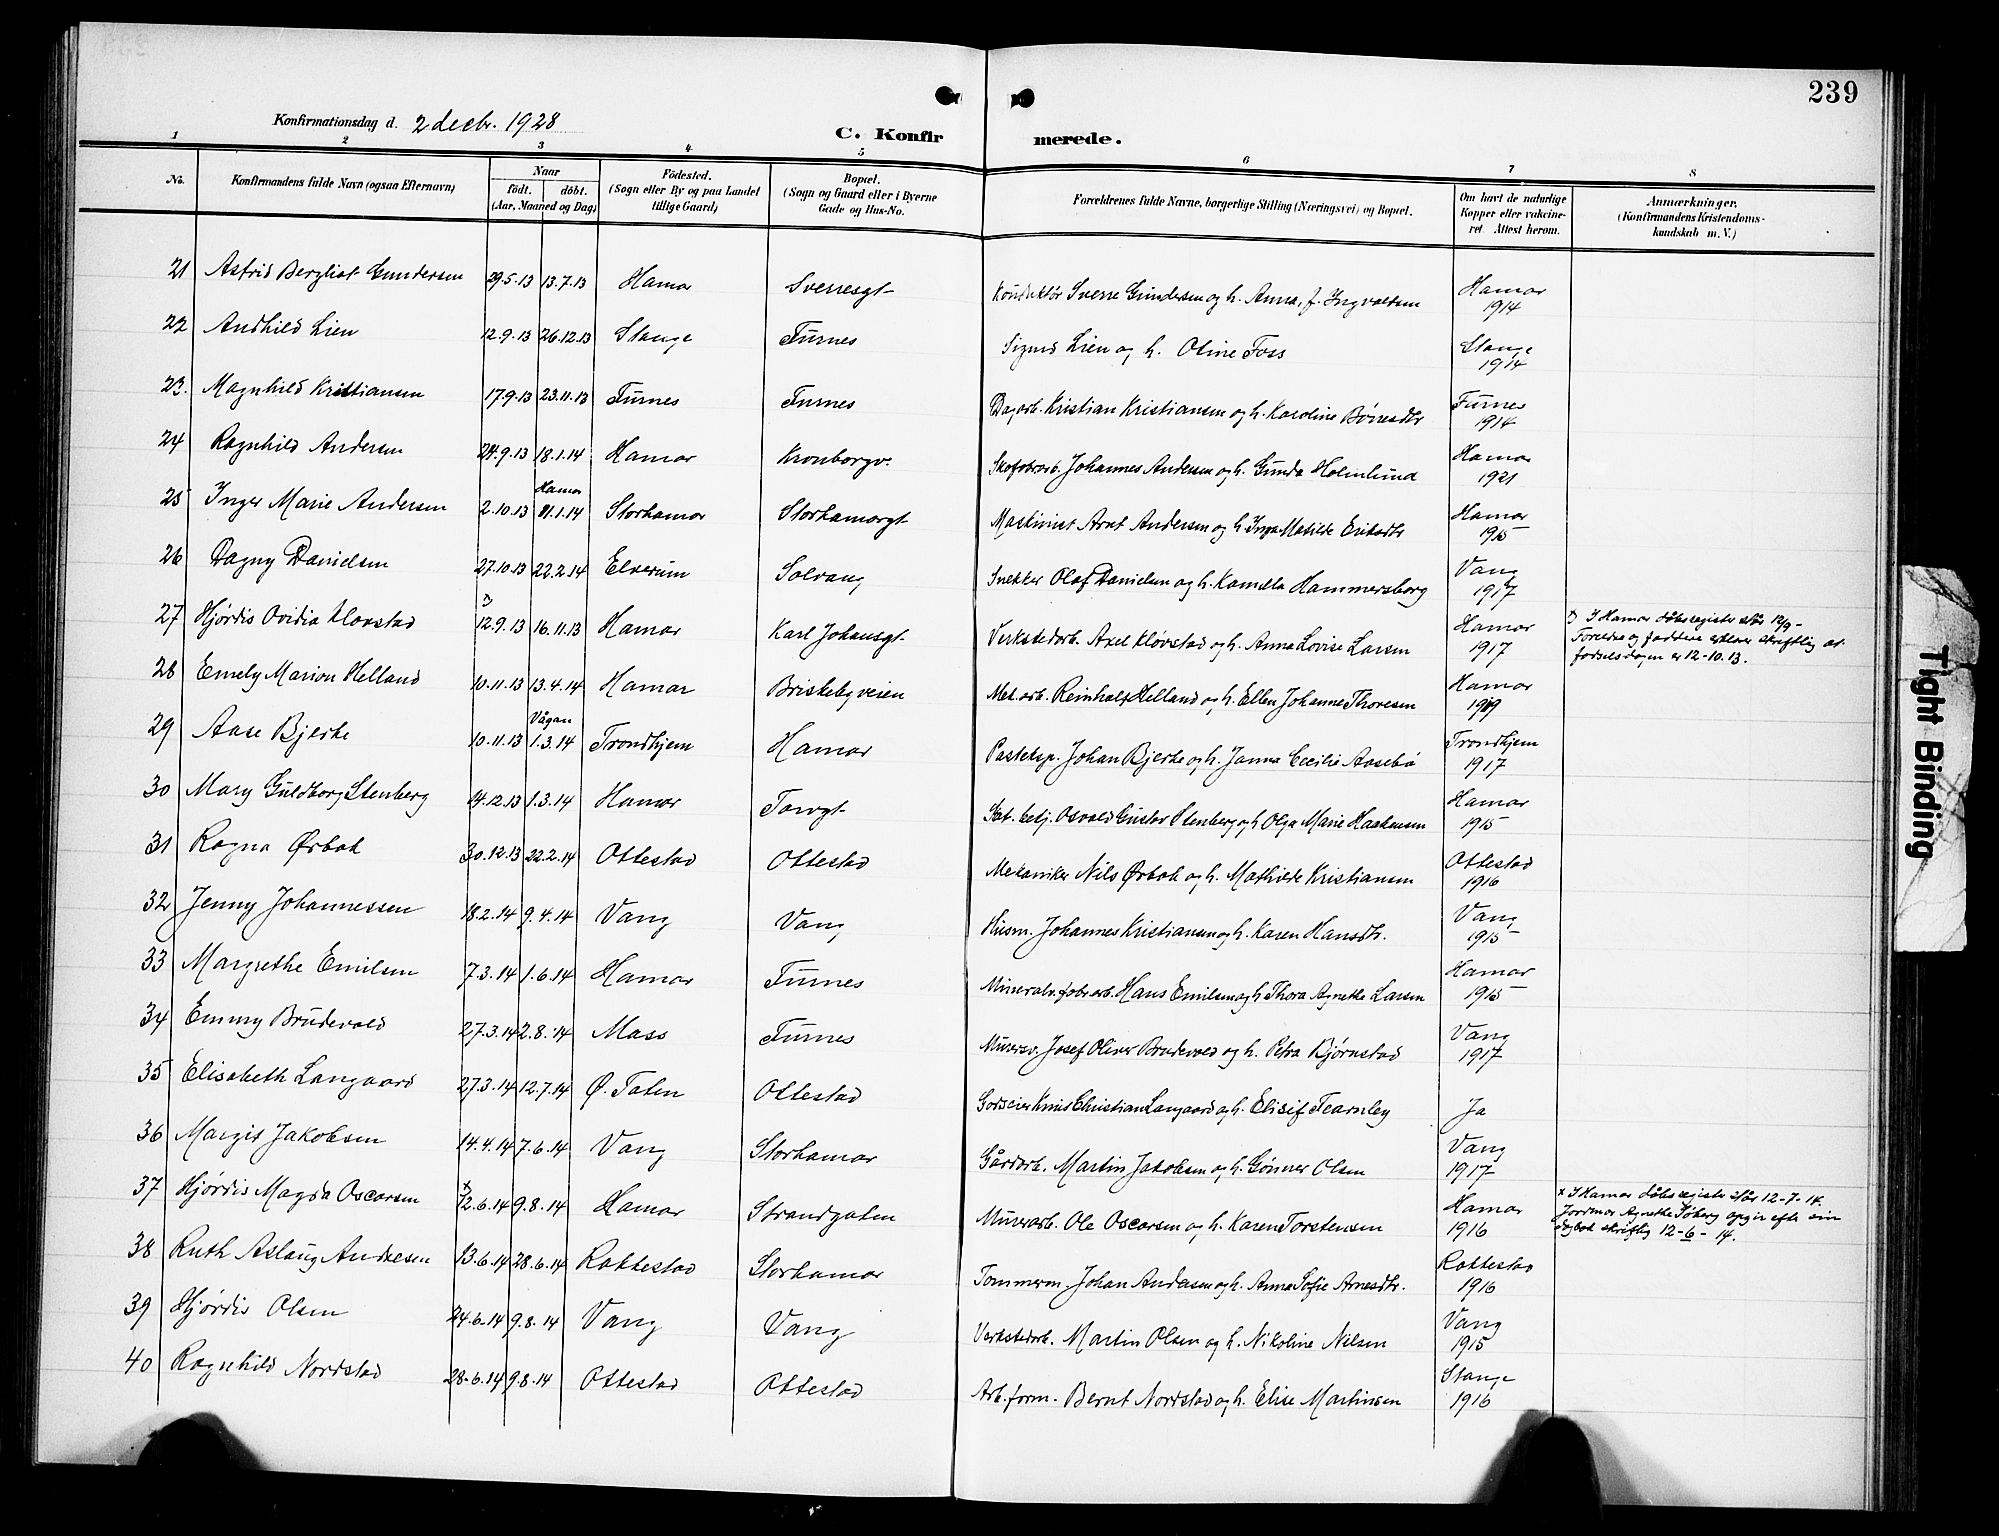 239
Konfirmationsdag d. 2 decbr. 1928
C. Konfirmerede.
1 2 3 4 5 6 7 8
No. Konfirmandens fulde Navn (ogsaa Efternavn) Naar födt. döbt. (Aar, Maaned og Dag) Födested. (Sogn eller By og paa Landet tillige Gaard) Bopæl. (Sogn og Gaard eller i Byerne Gade og Hus-No. Forældrenes fulde Navne, borgerlige Stilling (Næringsvei) og Bopæl. Om havt de naturlige Kopper eller vakcineret. Attest herom. Anmærkninger. (Konfirmandens Kristendomskundskab m. V.)
21 Astrid Bergliot Gundersen 29.5.13 13.7.13 Hamar Sverresgt. Konduktør Sverre Gundersen og h. Anna, f. Ingvaldsen Hamar 1914
22 Andhild Lien 12.9.13 26.12.13 Stange Furnes Sigurd Lien og h. Oline Foss Stange 1914
23. Magnhild Kristiansen 17.9.13 23.11.13 Furnes Furnes Dagarb. Kristian Kristiansen og h. Karoline Børresdtr Furnes 1914
24 Ragnhild Andersen 24.9.13 18.1.14 Hamar Kronborgv. Skofabrarb. Johannes Andersen og h. Gunda Holmlund Hamar 1921
25 Inger Marie Andersen 2.10.13 Hamar 11.1.14 Storhamar Storhamargt Maskinist Arnt Andersen og h. Inga Matilde Eriksdtr Hamar 1915
26 Dagny Danielsen 27.10.13 22.2.14 Elverum Solvang Snekker Olaf Danielsen og h. Kamilla Hammersborg Vang 1917
27 Hjørdis Ovidia Kløvstad x) 12.9.13 16.11.13 Hamar Karl Johansgt. Verkstedarb. Axel Kløvstad og h. Anna Lovise Larsen Hamar 1917 x) I Hamar dåbsregister står 12/9-
Foreldre og faddere erklærer skriftlig at
fødselsdagen er 12-10.13.
28 Emely Marion Helland 10.11.13 13.4.14 Hamar Briskebyveien Mek. arb. Reinholt Helland og h. Ellen Johanne Thoresen Hamar 1919
29 Aase Bjerke 10.11.13 Vågan 1.3.14 Trondhjem Hamar Posteksp. Johan Bjerke og h. Janna Cecilie Aasebø Trondhjem 1917
30 Mary Guldborg Stenberg 14.12.13 1.3.14 Hamar Torvgt. Stat. betj. Osvald Gustav Stenberg og h Olga Marie Haakensen Hamar 1915
31 Ragna Ørbak 30.12.13 22.2.14 Ottestad Ottestad Mekaniker Nils Ørbak og h. Mathilde Kristiansen Ottestad 1916
32 Jenny Johannessen 18.2.14 9.4.14 Vang Vang Husm. Johannes Kristiansen og h. Karen Hansdtr. Vang 1915
33 Margrethe Emilsen 7.3.14 1.6.14 Hamar Furnes Mineralv.fabr.arb. Hans Emilsen og h Thora Agnethe Larsen Hamar 1915
34 Emmy Brudevold 27.3.14 2.8.14 Moss Furnes Murersv. Josef Oliver Brudevold og h. Petra Bjørnstad Vang 1917
35 Elisabeth Langaard 27.3.14 12.7.14 Ø. Toten Ottestad Godseier Knud Christian Langaard og h. Elisif Fearnley Ja
36 Margit Jakobsen 14.4.14 7.6.14 Vang Storhamar Gårdarb. Martin Jakobsen og h. Gunner Olsen Vang 1917
37 Hjørdis Magda Oscarsen x) 12.6.14 9.8.14 Hamar Strandgaten Murerarb. Ole Oscarsen og h. Karen Torstensen Hamar 1916 x I Hamar dåbsregister står 12-7-14.
Jordmor Agnethe Søberg opgir efter sin
dagbok skriftlig 12-6-14.
38 Ruth Aslaug Andresen 13.6.14 28.6.14 Rottestad Storhamar Tømmerm. Johan Andersen og h. Anna Sofie Arnesdtr. Rottestad 1916
39 Hjørdis Olsen 24.6.14 9.8.14 Vang Vang Verkstedarb. Martin Olsen og h. Nikoline Nilsen Vang 1915
40 Ragnhild Nordstad 28.6.14 9.8.14 Ottestad Ottestad Arb.form. Bernt Nordstad og h. Elise Martinsen Stange 1916
Tight Binding